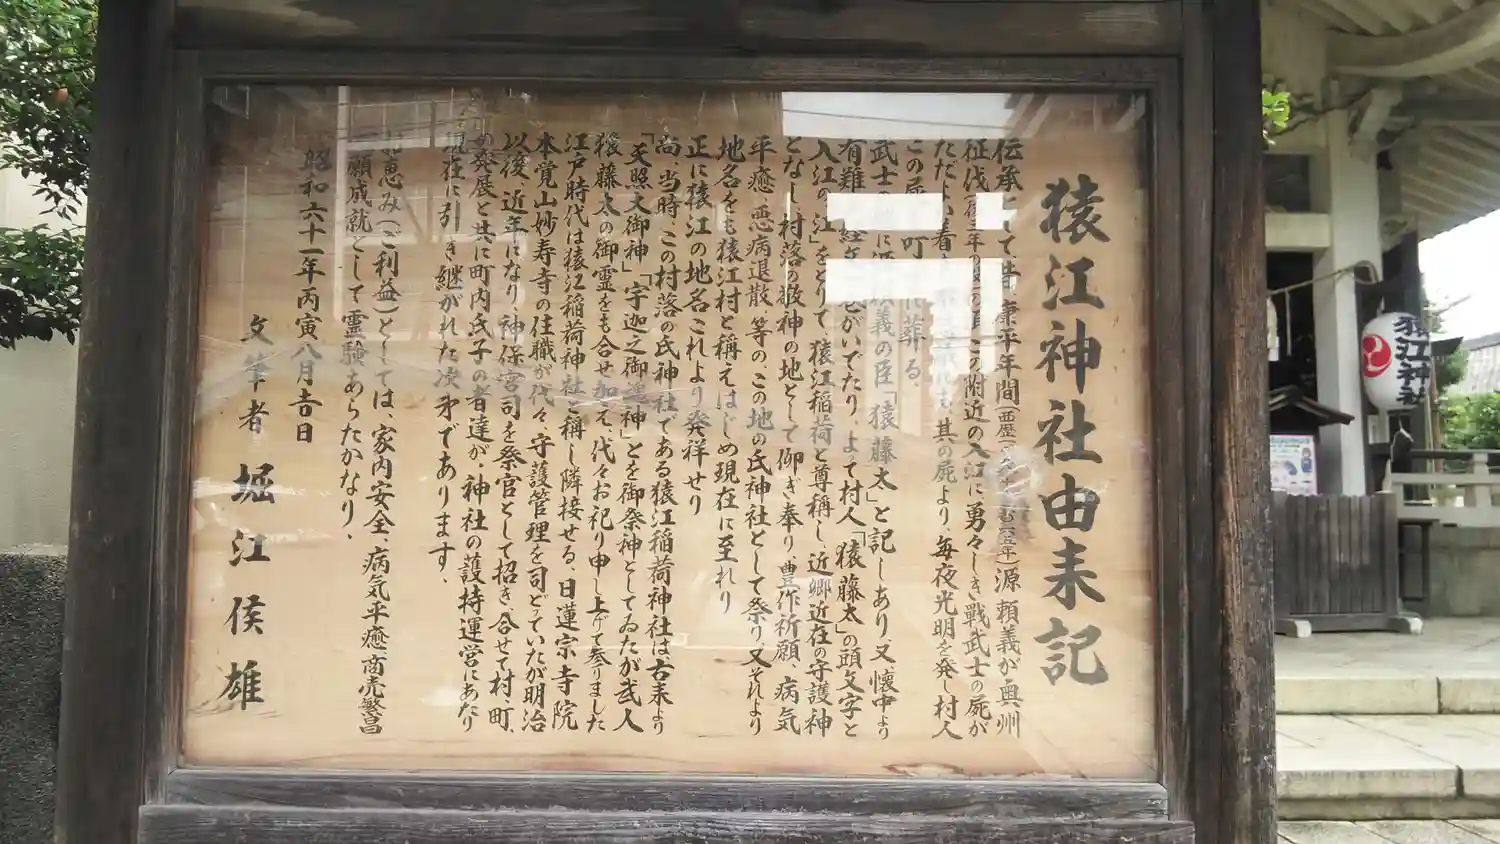 猿江神社由来記
伝承として 康平年間(西暦 年)源頼義が奥州
征伐(後三年の役)の頃、この附近の入江に勇々しき戦武士の屍が
ただよい着 其の屍より、毎夜光明を発し村人
この屍 葬る、
武士の 義の臣「猿藤太」と記しあり又、懐中より
有難 がいでたり、よて村人「猿藤太」の頭文字と
入江の「江」をとりて、猿江稲荷と尊称し、近郷近在の守護神
となし、村落の敬神の地として仰ぎ奉り、豊作祈願、病気
平癒、悪病退散、等のこの地の氏神社として祭り又それより
地名をも猿江村と稱えはじめ現在に至れり
正に猿江の地名これより発祥せり
尚、当時、この村落の氏神社である猿江稲荷神社は古来より
「天照大御神」「宇迦之御魂神」とを御祭神としてゐたが武人
猿藤太の御霊をも合せ加え、代々お祀り申し上げて参りました
江戸時代は猿江稲荷神社と稱し隣接せる、日蓮宗寺院
本覚山妙寿寺の住職が代々、守護管理を司どていたが明治
以後、近年になり、神保宮司を祭官として招き、合せて村、町、
の発展と共に町内氏子の者達が、神社の護持運営にあたり
現在に引き継がれた次第であります、
恵み(ご利益)としては、家内安全、病気平癒、商売繁昌
願成就として霊験あらたかなり、
昭和六十一年丙寅八月吉日
文筆者 堀江俊雄
猿江神社